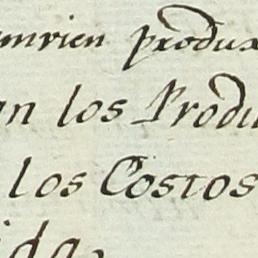 produx
an los Produ
los Costos
ida,